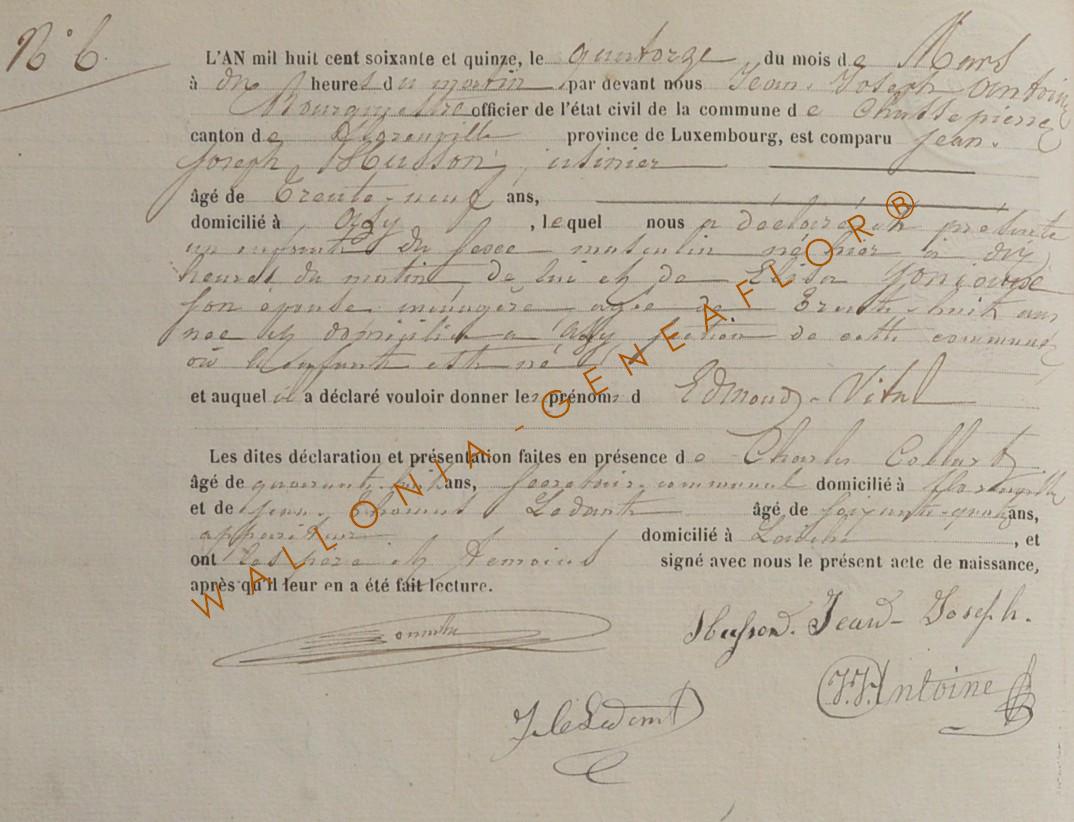 N° 6
L'AN mil huit cent soixante et quinze, le quatorze du mois de Mars
à dix heures du matin par devant nous Jean Joseph Antoine
Bourgmestre officier de l'état civil de la commune de Chassepierre
canton de province de Luxembourg, est comparu Jean
Joseph Husson, usinier
âgé de Trente-neuf ans,
domicilié à Azy, lequel nous a déclaré et présenté
un enfant du sexe masculin né hier à dix
heures du matin de lui et de Elisa
son épouse ménagère agée de Trente-huit ans
née et domiciliée à Azy section de cette commune
où l'enfant est né
et auquel il a déclaré vouloir donner les prénoms d Edmond-Vital
Les dites déclaration et présentation faites en présence de Charles Collart
âgé de ans, Secrétaire communal domicilié à
et de Jean Ledent âgé de ans,
appariteur domicilié à Laiche, et
ont les père et témoins signé avec nous le présent acte de naissance,
après qu'il leur en a été fait lecture.
Husson. Jean-Joseph.
J.J. Antoine
Ledent
WALLONIA-GENEAFLOR®